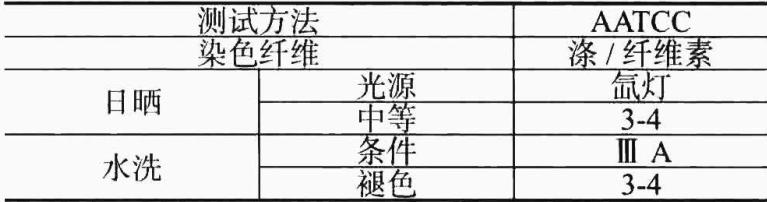 测试方法 AATCC
染色纤维 涤/纤维素
日晒 光源 氙灯
中等 3-4
水洗 条件 Ⅲ A
褪色 3-4